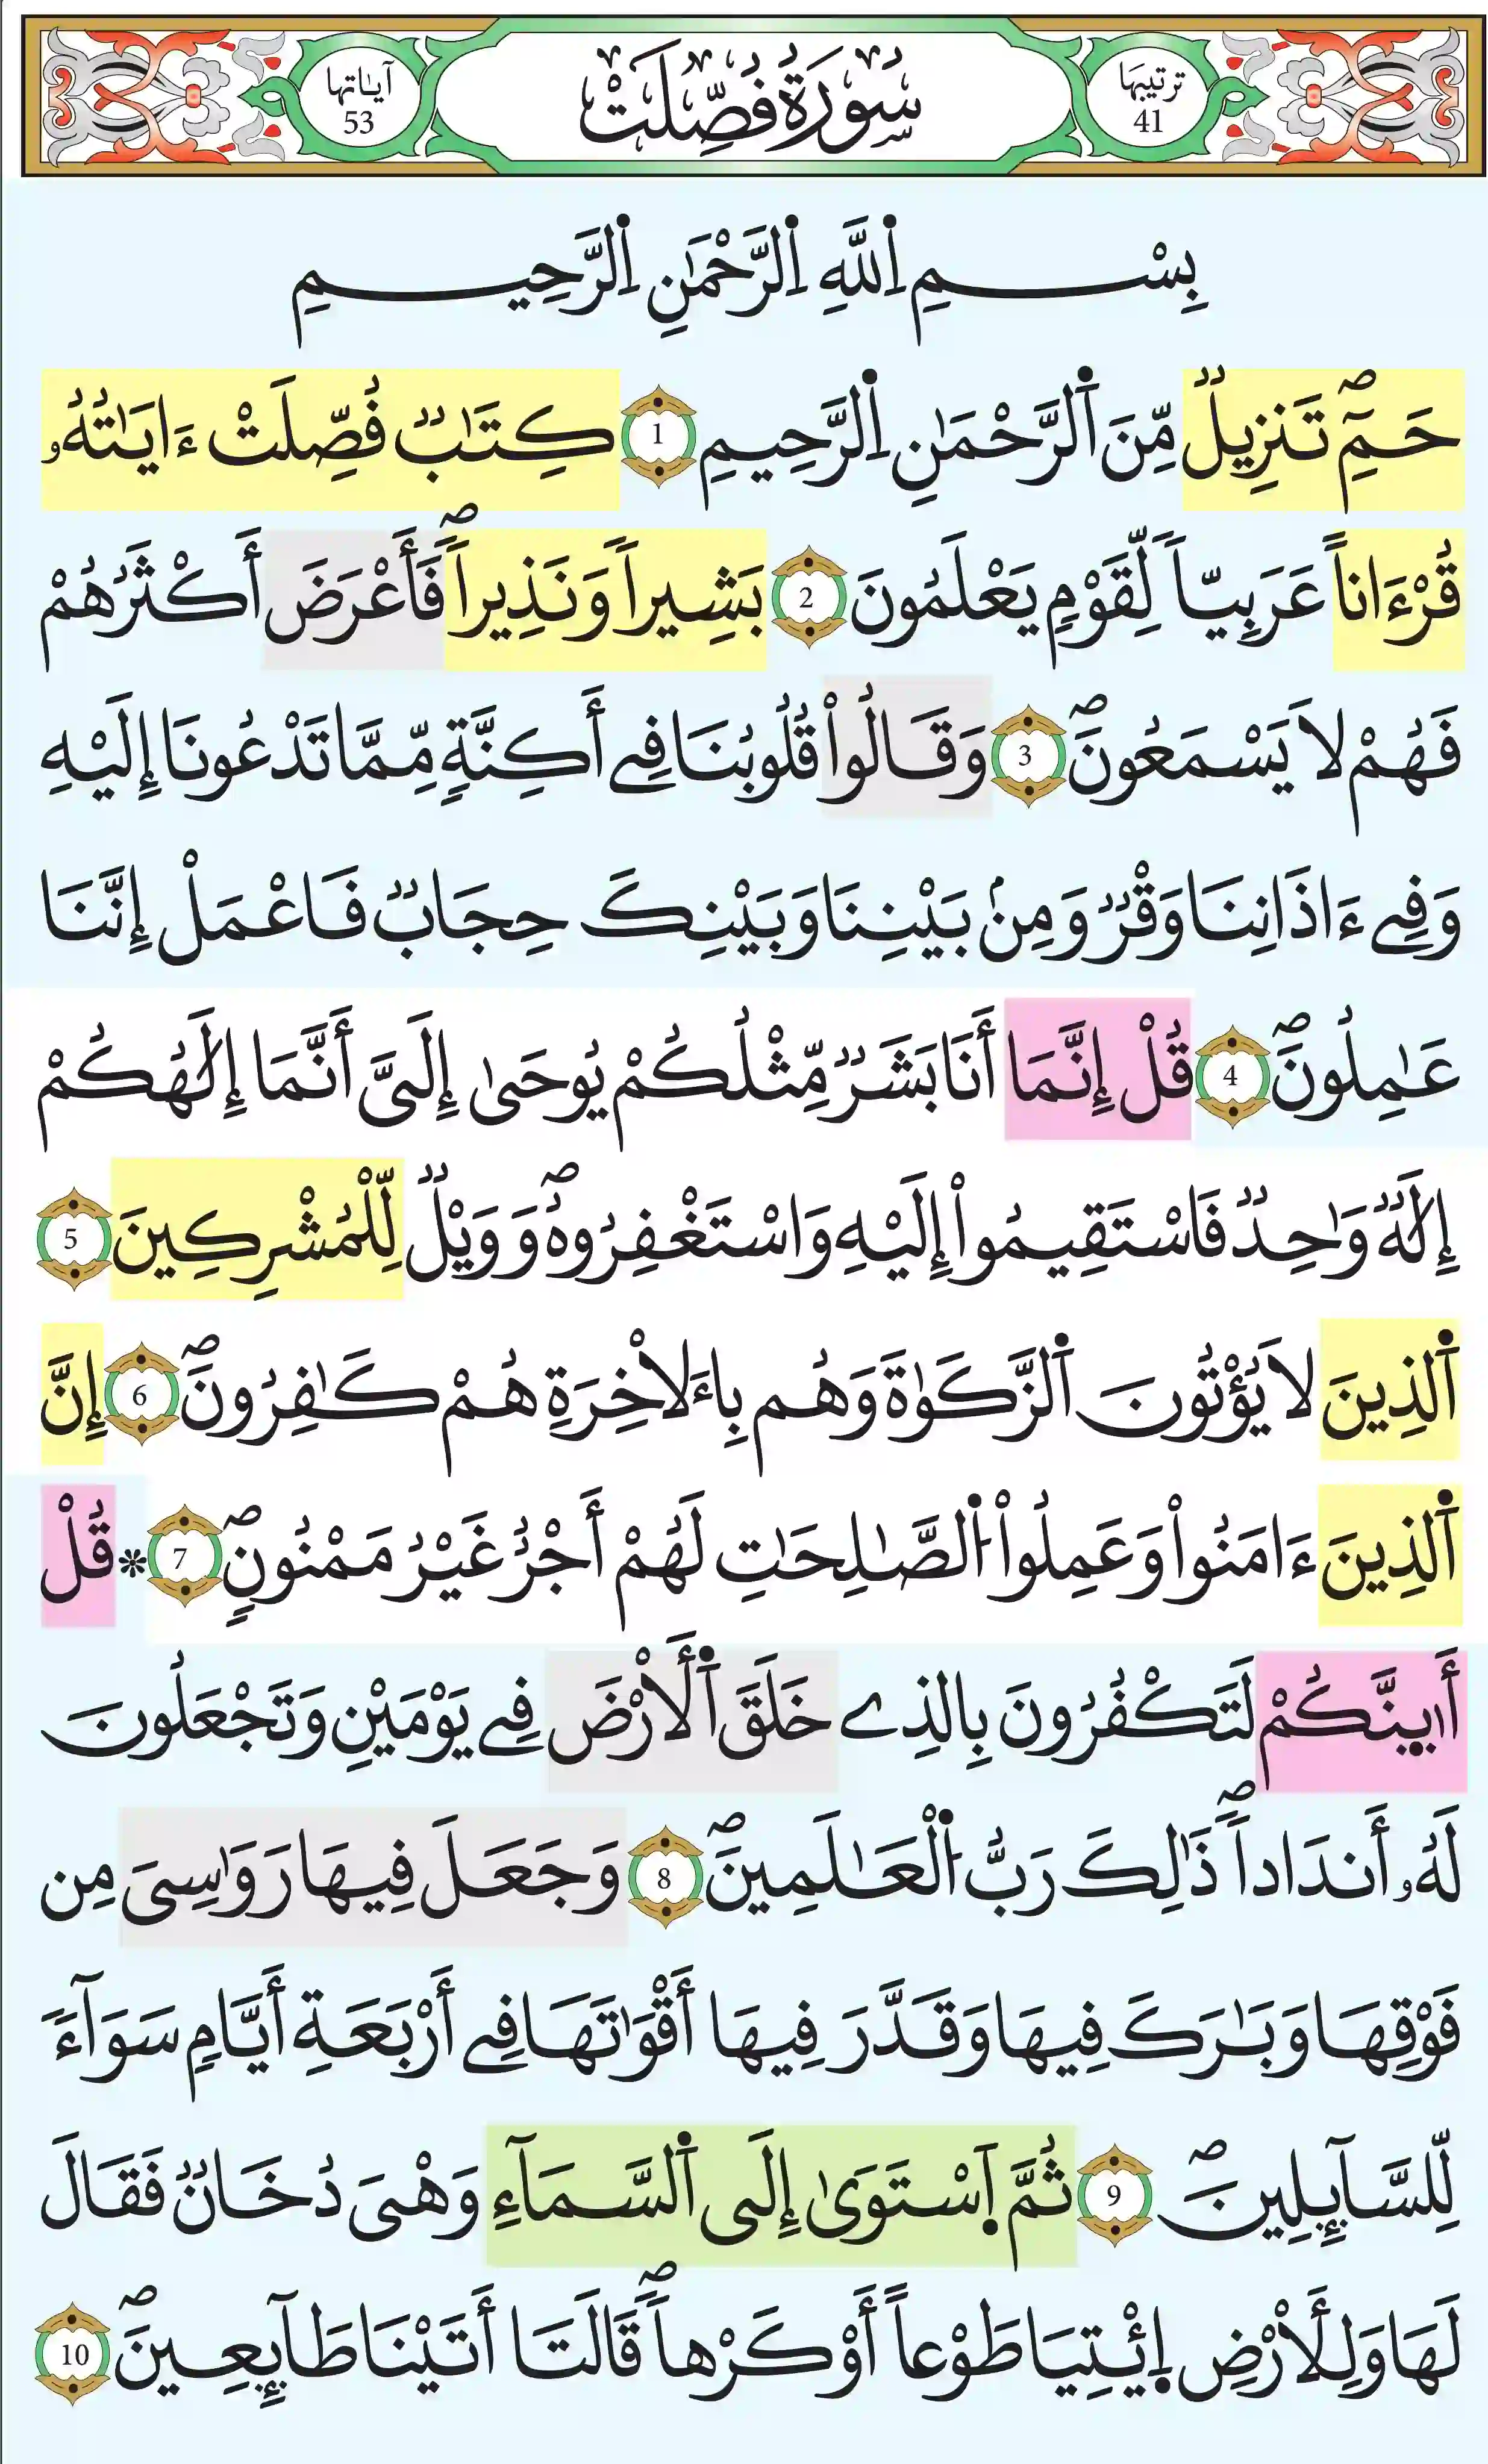 ترتيبها
41
سُورَةُ فُصِّلَتْ
آياتها
53
بِسْمِ اِ۬للَّهِ اِ۬لرَّحْمَٰنِ اِ۬لرَّحِيمِ
حَمِٓۖ تَنزِيلٞ مِّنَ اَ۬لرَّحْمَٰنِ اِ۬لرَّحِيمِ 1 كِتَٰبٞ فُصِّلَتْ ءَايَٰتُهُۥ
قُرْءَاناً عَرَبِيّاٗ لِّقَوْمٖ يَعْلَمُونَ 2 بَشِيراٗ وَنَذِيراٗۖ فَأَعْرَضَ أَكْثَرُهُمْ
فَهُمْ لَا يَسْمَعُونَۖ 3 وَقَالُواْ قُلُوبُنَا فِےٓ أَكِنَّةٖ مِّمَّا تَدْعُونَا إِلَيْهِ
وَفِےٓ ءَاذَانِنَا وَقْرٞ وَمِنۢ بَيْنِنَا وَبَيْنِكَ حِجَابٞ فَاعْمَلْ إِنَّنَا
عَٰمِلُونَۖ 4 قُلْ إِنَّمَا أَنَا بَشَرٞ مِّثْلُكُمْ يُوحَىٰ إِلَىَّ أَنَّمَا إِلَٰهُكُمْ
إِلَٰهٞ وَٰحِدٞ فَاسْتَقِيمُواْ إِلَيْهِ وَاسْتَغْفِرُوهُۖ وَوَيْلٞ لِّلْمُشْرِكِينَ 5
اَ۬لذِينَ لَا يُؤْتُونَ اَ۬لزَّكَوٰةَ وَهُم بِالَاخِرَةِ هُمْ كَٰفِرُونَۖ 6 إِنَّ
اَ۬لذِينَ ءَامَنُواْ وَعَمِلُواْ اُ۬لصَّٰلِحَٰتِ لَهُمْ أَجْرٌ غَيْرُ مَمْنُونٖۖ 7 * قُلْ
أَئِنَّكُمْ لَتَكْفُرُونَ بِالذِے خَلَقَ اَ۬لْأَرْضَ فِے يَوْمَيْنِ وَتَجْعَلُونَ
لَهُۥ أَندَاداٗۖ ذَٰلِكَ رَبُّ اُ۬لْعَٰلَمِينَۖ 8 وَجَعَلَ فِيهَا رَوَٰسِىَ مِن
فَوْقِهَا وَبَٰرَكَ فِيهَا وَقَدَّرَ فِيهَا أَقْوَٰتَهَا فِے أَرْبَعَةِ أَيَّامٖ سَوَآءٗ
لِّلسَّآئِلِينَۖ 9 ثُمَّ اَ۪سْتَوَىٰ إِلَى اَ۬لسَّمَآءِ وَهْىَ دُخَانٞ فَقَالَ
لَهَا وَلِلْأَرْضِ اِ۪ئْتِيَا طَوْعاً أَوْ كَرْهاٗۖ قَالَتَا أَتَيْنَا طَآئِعِينَۖ 10